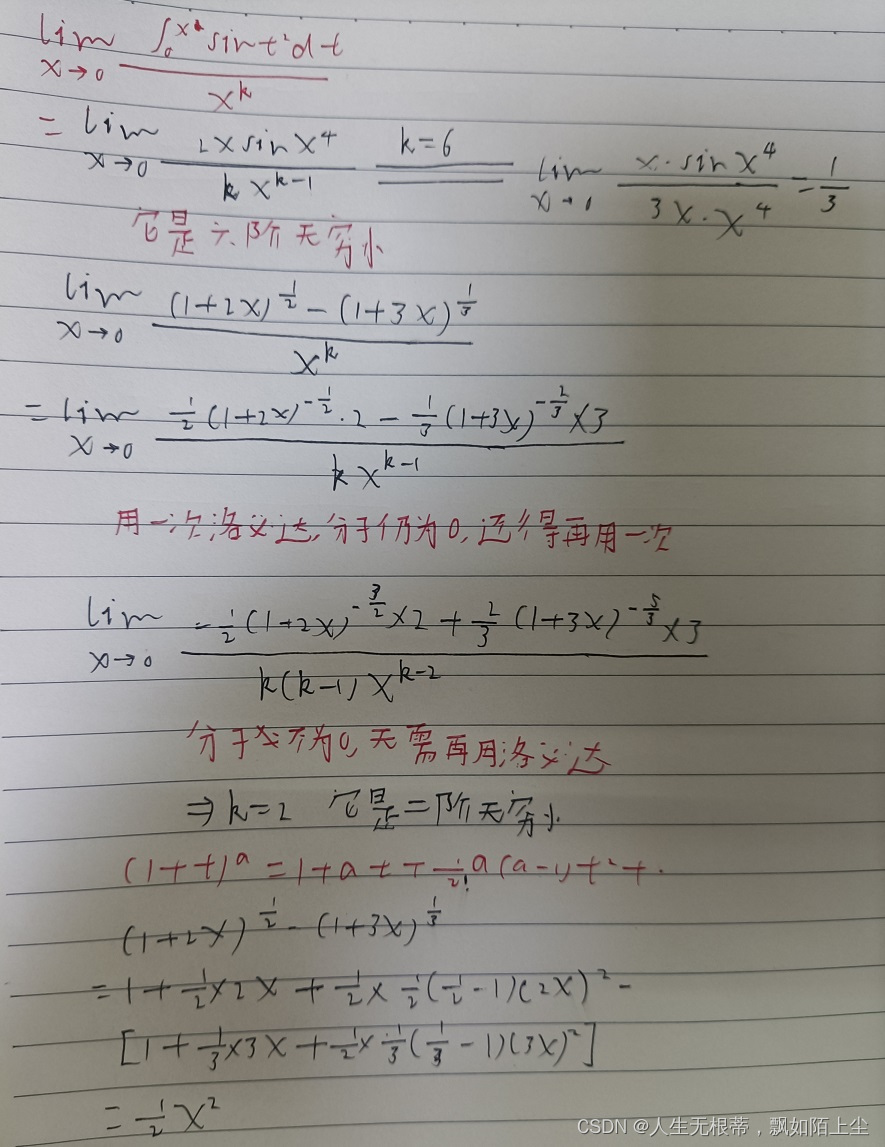 lim x→0 ∫₀^x² sin t² dt / x^k
= lim x→0 2x sin x⁴ / k x^(k-1) =(k=6)= lim x→0 x·sin x⁴ / 3x·x⁴ = 1/3
它是六阶无穷小
lim x→0 ((1+2x)^(1/2) - (1+3x)^(1/3)) / x^k
= lim x→0 (1/2 (1+2x)^(-1/2)·2 - 1/3 (1+3x)^(-2/3)×3) / k x^(k-1)
用一次洛必达,分子仍为0,还得再用一次
lim x→0 (-1/2 (1+2x)^(-3/2)×2 + 2/3 (1+3x)^(-5/3)×3) / k(k-1) x^(k-2)
分子不为0,无需再用洛必达
⇒ k=2 它是二阶无穷小
(1+t)^a = 1+at+1/2! a(a-1)t²+·
(1+2x)^(1/2) - (1+3x)^(1/3)
= 1+1/2×2x+1/2×1/2(1/2-1)(2x)² -
[1+1/3×3x+1/2×1/3(1/3-1)(3x)²]
= 1/2 x²
CSDN @人生无根蒂，飘如陌上尘